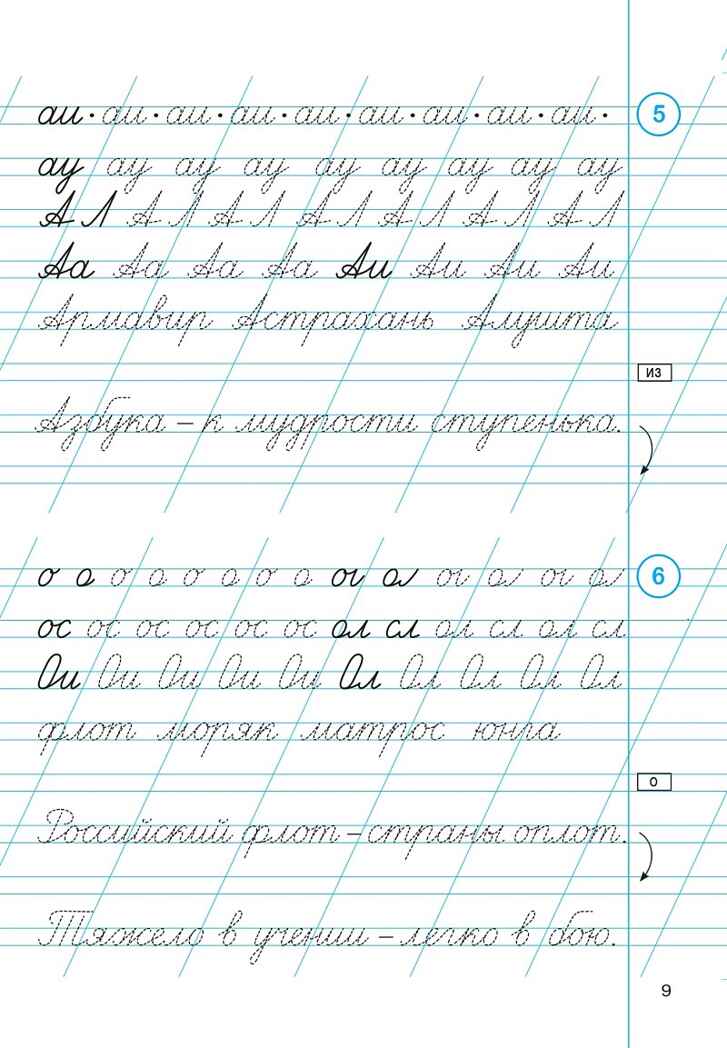 аи · аи · аи · аи · аи · аи · аи · аи · аи · 5
ау ау ау ау ау ау ау ау ау
А Л А Л А Л А Л А Л А Л А Л
Аа Аа Аа Аа Аи Аи Аи Аи
Армавир Астрахань Алушта
из
Азбука – к мудрости ступенька.
о о о о о о о о ог ол ог ол ог ол 6
ос ос ос ос ос ос ол сл ол сл ол сл
Ои Ои Ои Ои Ои Ол Ол Ол Ол Ол
флот моряк матрос юнга
о
Российский флот – страны оплот.
Тяжело в учении – легко в бою.
9